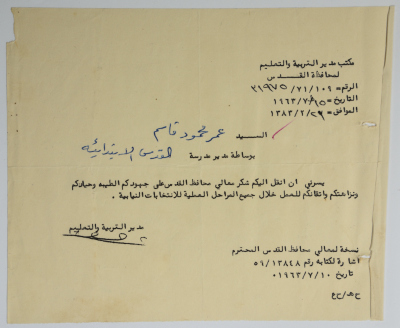 مكتب مدير التربية والتعليم
لمحافظة القدس
الرقم= ١٠٢/ ٧١/ ٣١٩٧٥
التاريخ= ١٥/ ٧/ ١٩٦٣
الموافق= ٢/ ١٣٨٣
السيد عمر محمود قاسم
بوساطة مدير مدرسة القدس الابتدائيه
يسرني ان انقل اليكم شكر معالي محافظ القدس على جهودكم الطيبه وحيادكم
ونزاهتكم واتقانكم للعمل خلال جميع المراحل العملية للانتخابات النيابية .
مدير التربية والتعليم
نسخة لمعالي محافظ القدس المحترم
اشارة لكتابه رقم ١٣٨٤٨/ ٥٩
تاريخ ١٠/ ٧/ ١٩٦٣.